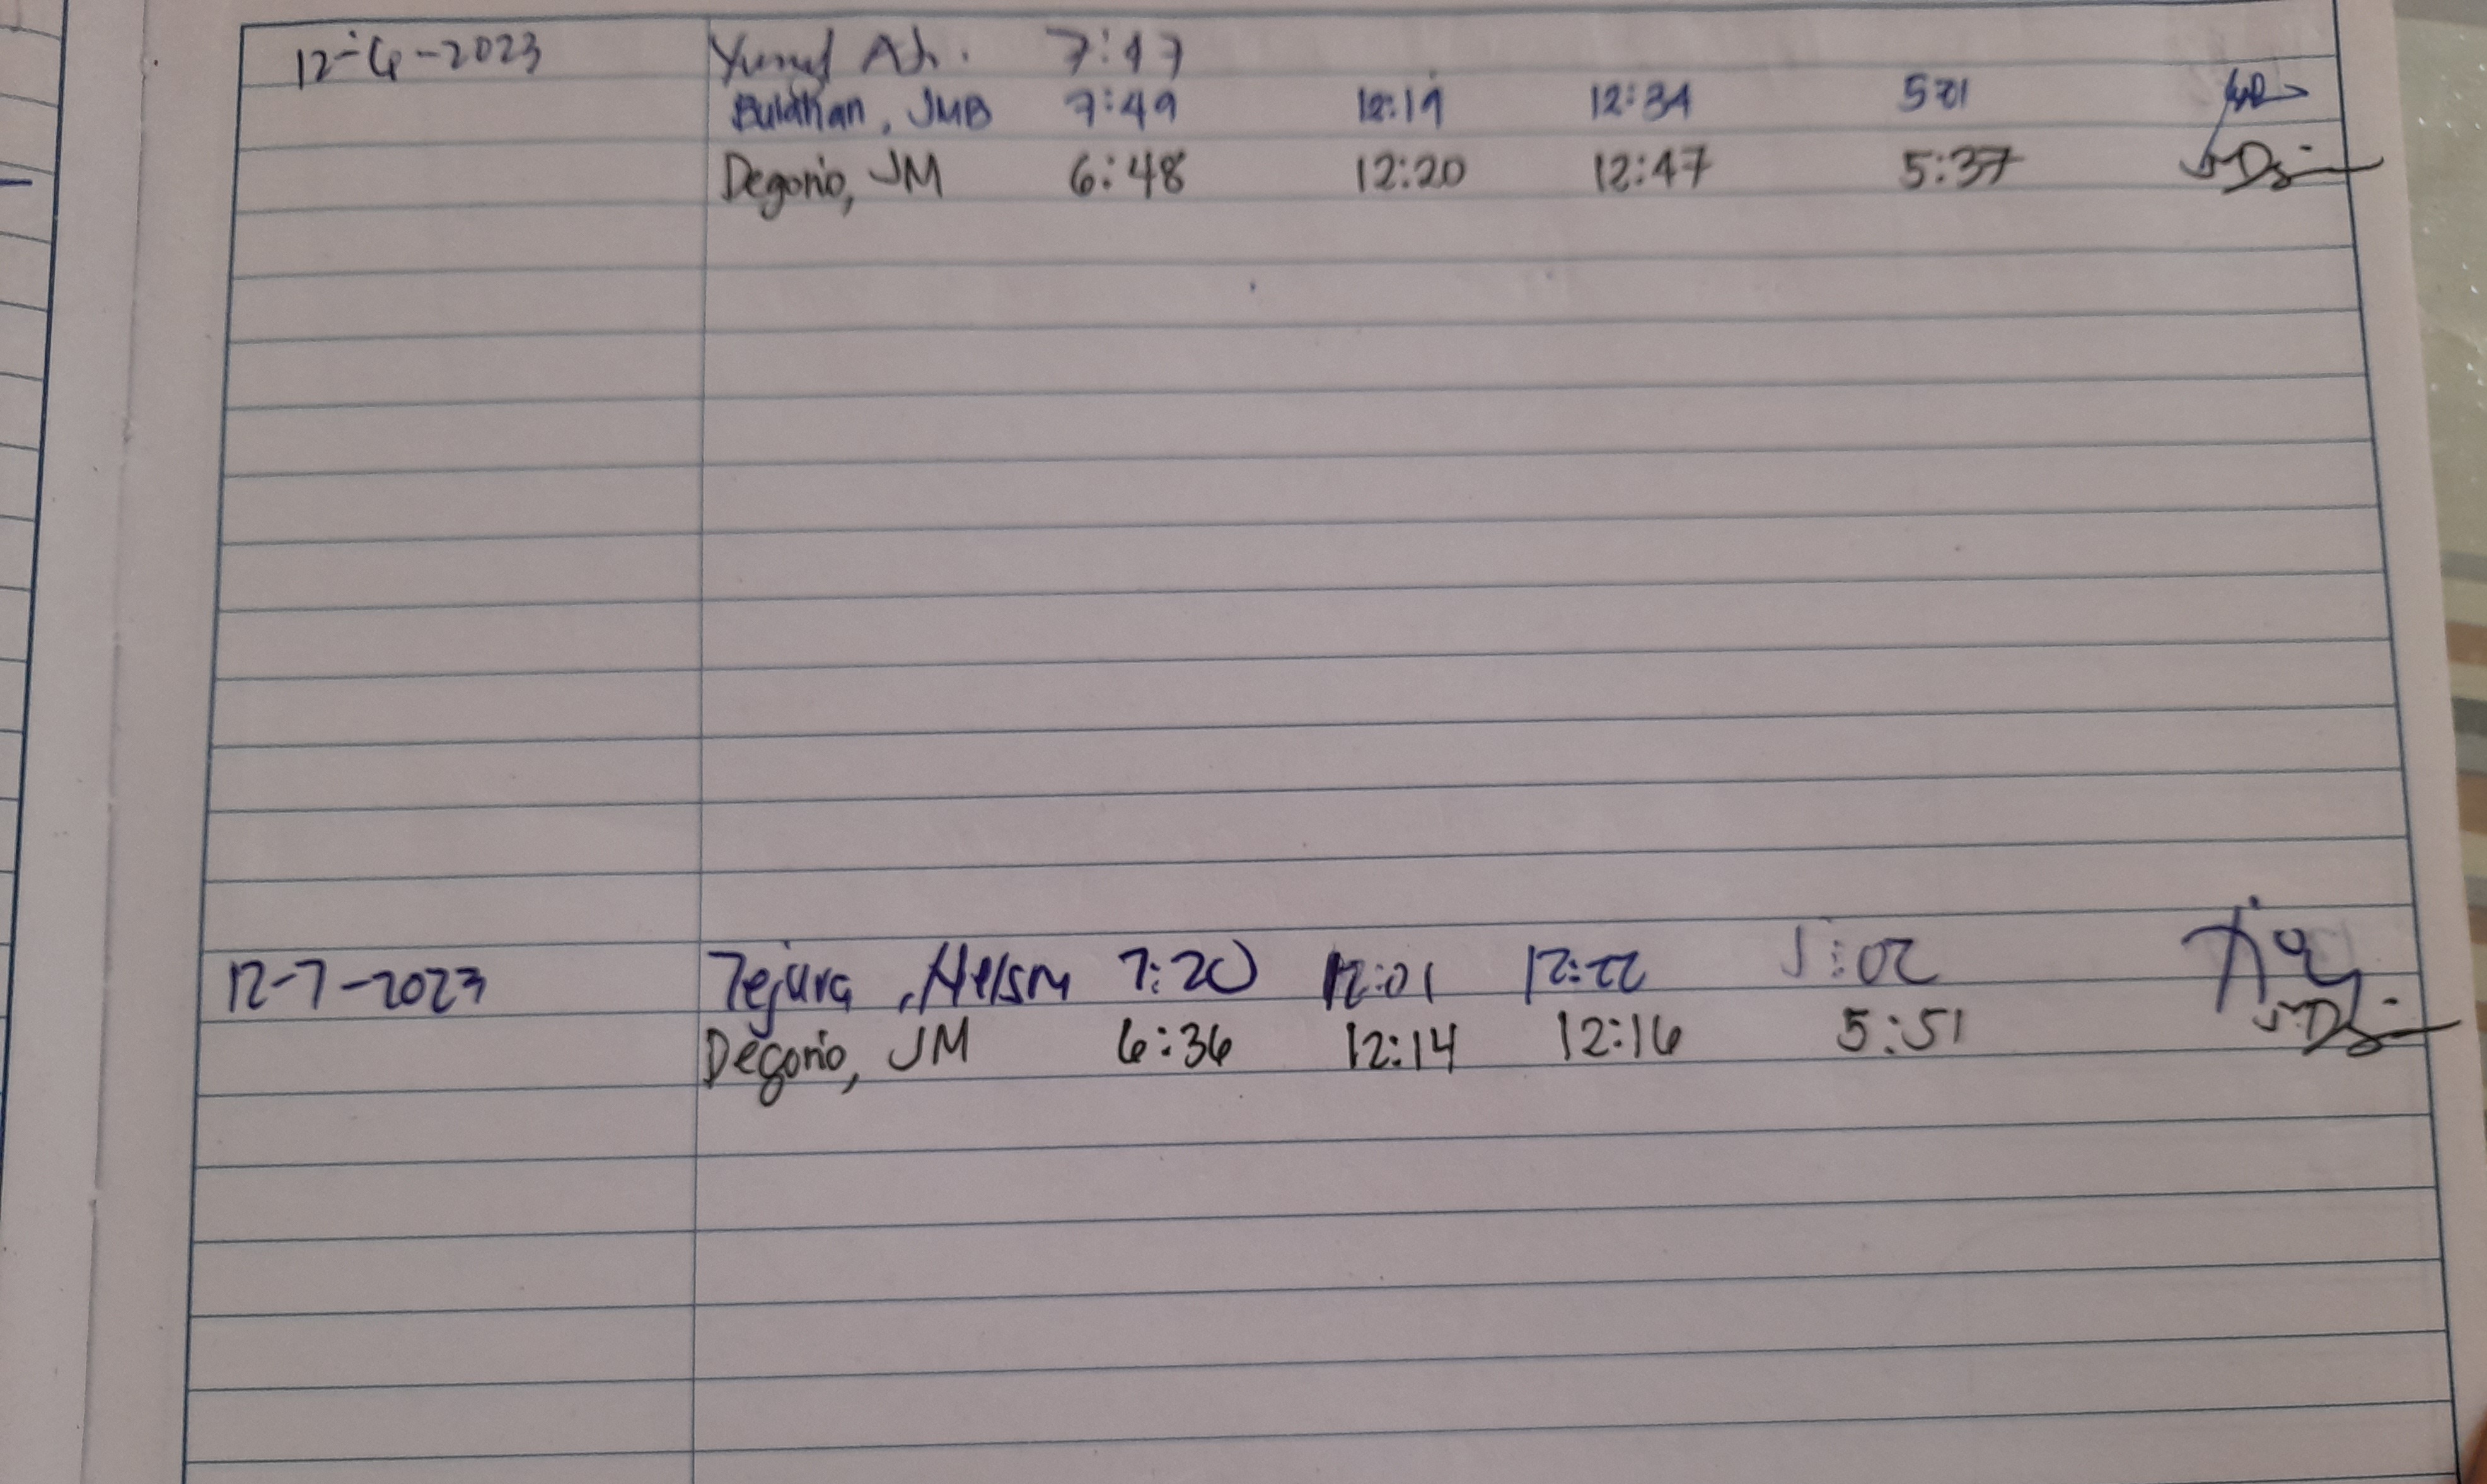 12-6-2023 Yusuf Ah. 7:47
Bulahan, JMB 7:49 12:19 12:34 5:01
Degorio, JM 6:48 12:20 12:47 5:37
12-7-2023 Tejura, Nelson 7:20 12:01 12:22 5:02
Degorio, JM 6:36 12:14 12:16 5:51